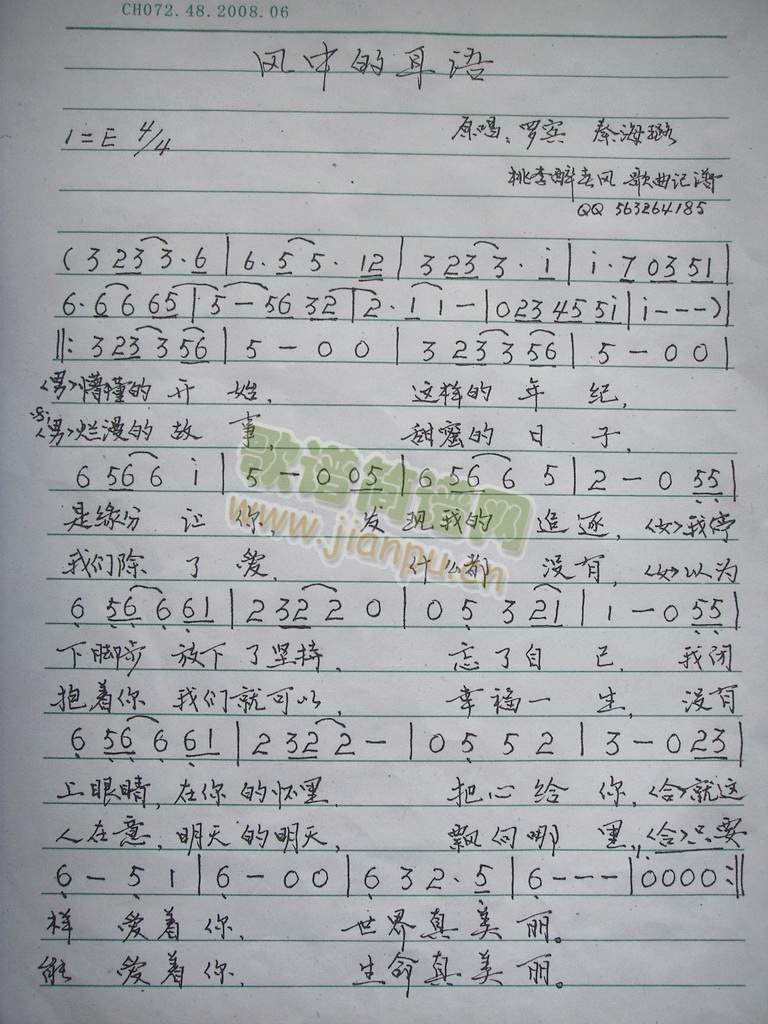 CH072.48.2008.06
风中的耳语
1=E 4/4 原唱：罗宾 秦海璐
桃李醉春风 歌曲记谱
QQ 563264185
(3 23 3·6 | 6·5 5·12 | 3 23 3·i | i·7 0351 |
6·6 6 65 | 5 - 56 32 | 2·1 1 - | 023 45 5i | i - - -)
‖: 3 23 3 56 | 5 - 0 0 | 3 23 3 56 | 5 - 0 0 |
<男>懵懂的 开 始， 这样的 年 纪，
<男>烂漫的 故 事， 甜蜜的 日 子，
6 56 6 i | 5 - 0 05 | 6 56 6 5 | 2 - 0 55 |
是缘份 让 你， 发 现我的 追 逐，<女>我停
我们除 了 爱， 什么都 没有，<女>以为
6 56 6 61 | 2 32 2 0 | 0 5 3 21 | 1 - 0 55 |
下脚步 放下了坚持， 忘了自 己， 我闭
抱着你 我们就可以， 幸福一 生， 没有
6 56 6 61 | 2 32 2 - | 0 5 5 2 | 3 - 0 23 |
上眼睛，在你的怀里， 把心给 你，<合>就这
人在意，明天的明天， 飘向哪 里，<合>只要
6 - 5 1 | 6 - 0 0 | 6 3 2·5 | 6 - - - | 0 0 0 0 :‖
样 爱着你， 世界真美 丽。
能 爱着你， 生命真美 丽。
歌谱简谱网
www.jianpu.cn